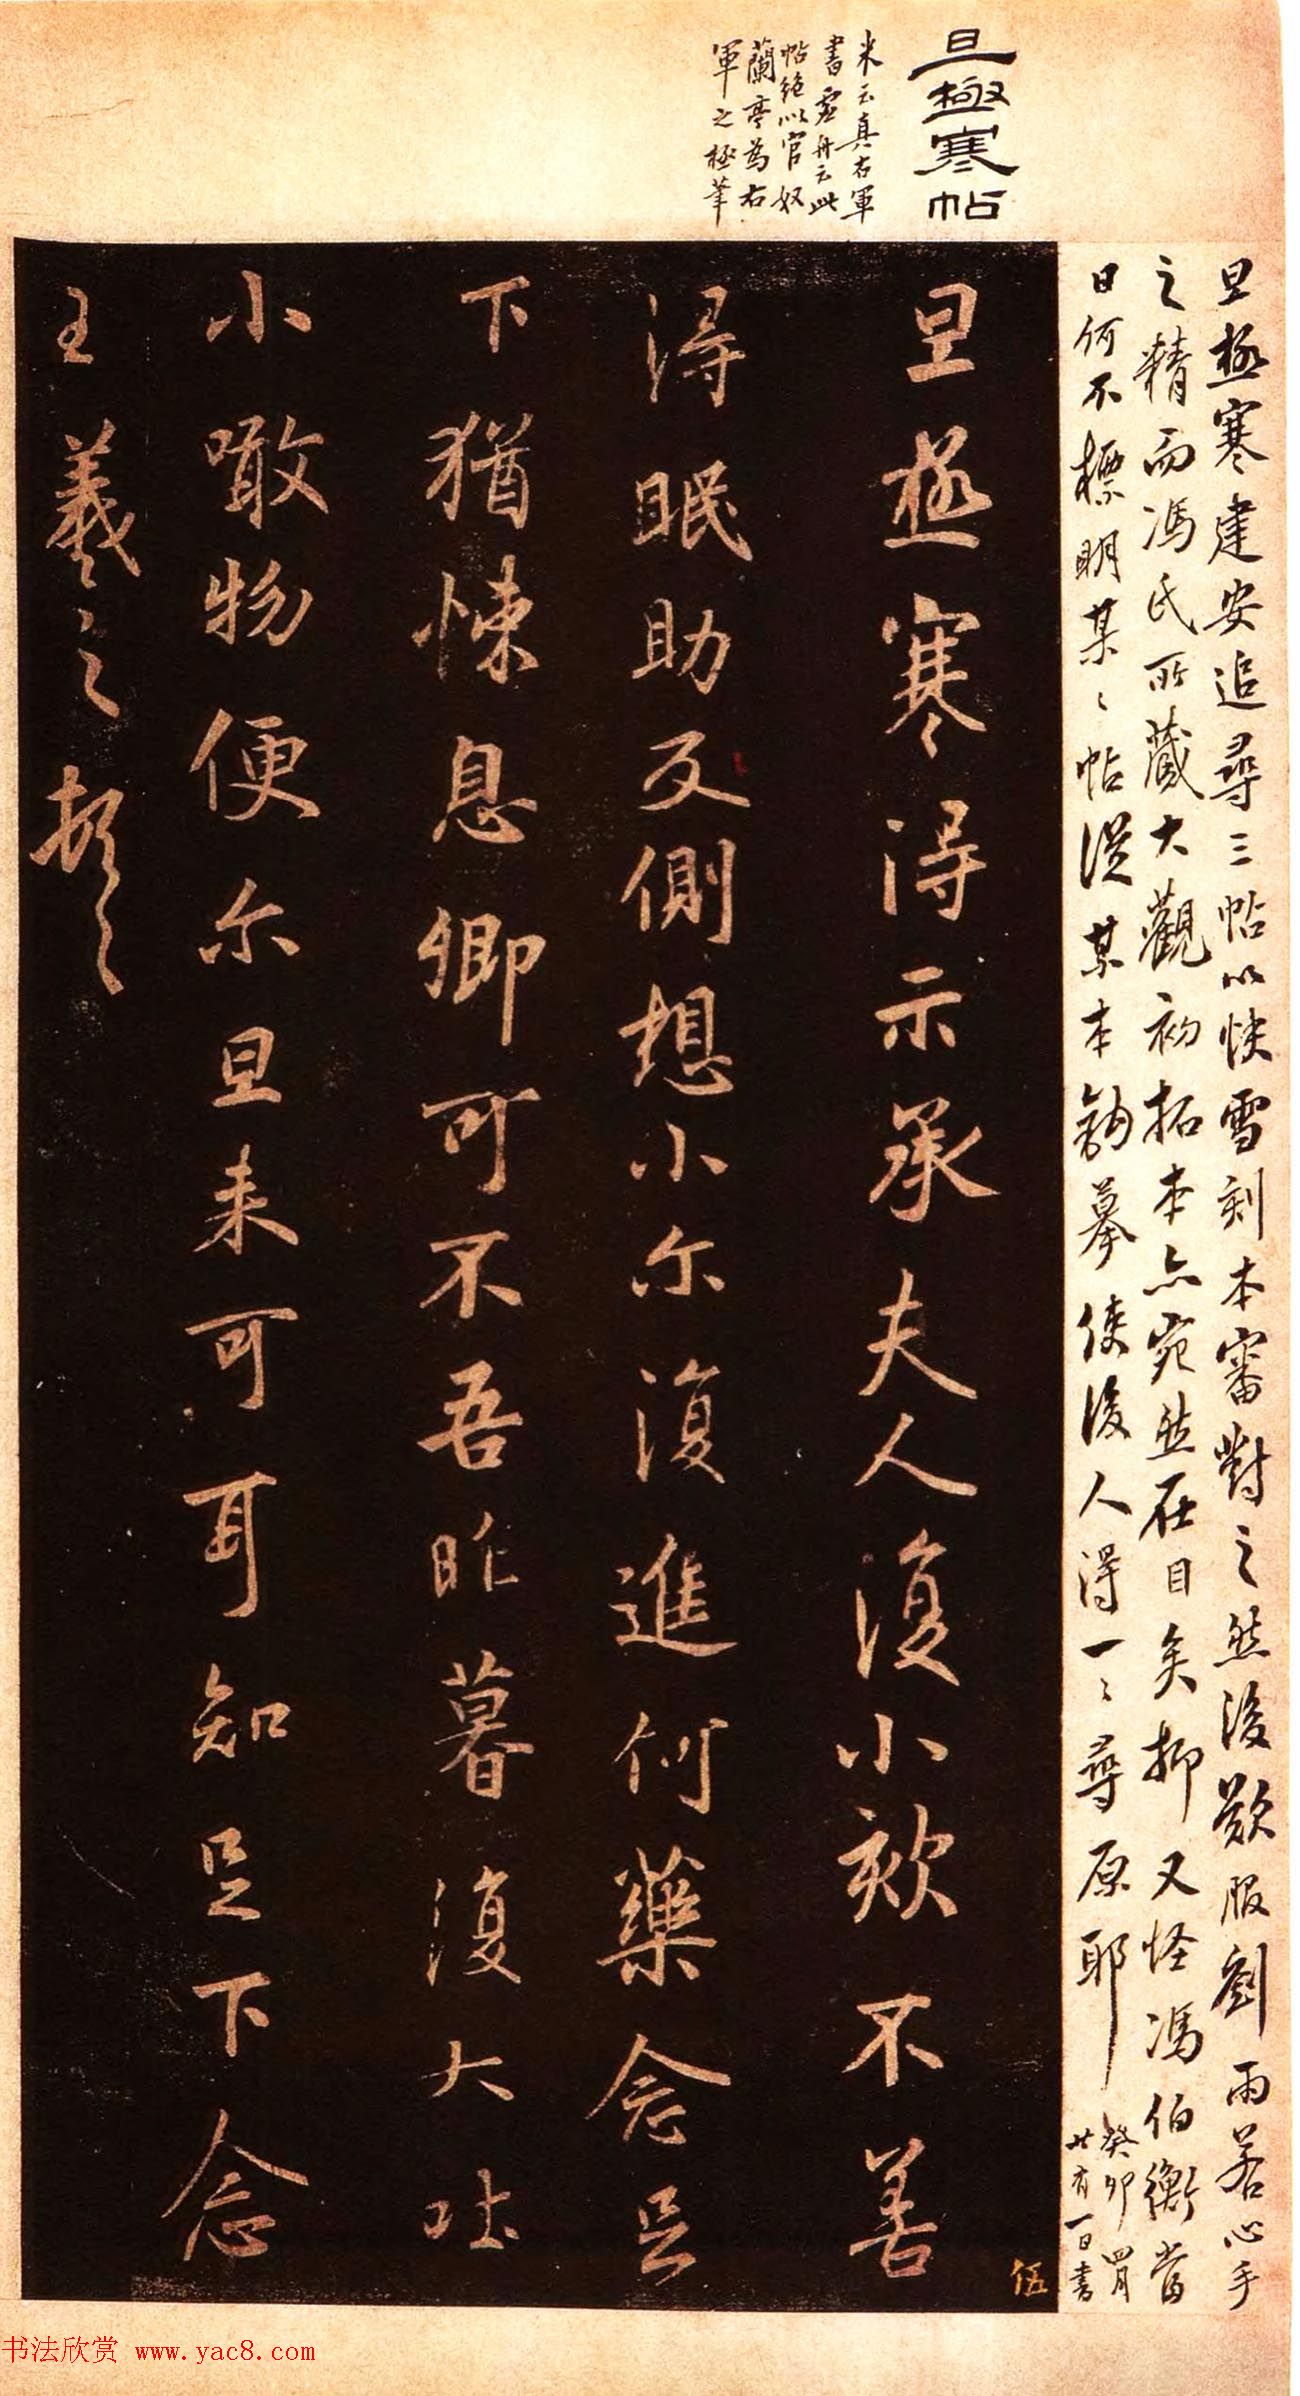 旦極寒帖
米云真右軍
書虛舟云此
帖絶以官奴
蘭亭為右
軍之極筆
旦極寒建安追尋三帖以快雪刻本審對之然後歎服劉雨若心手
之精而馮氏所藏大觀初拓本亦宛然在目矣抑又怪馮伯衡當
日何不標明某〻帖從某本鉤摹使後人得一〻尋原耶
癸卯四月
廿有一日書
旦極寒得示承夫人復小欬不善
得眠助反側想小尔復進何藥念足
下猶悚息卿可可不吾昨暮復大吐
小噉物便尔旦来可耳知足下念
王羲之頓〻
伍
书法欣赏 www.yac8.com